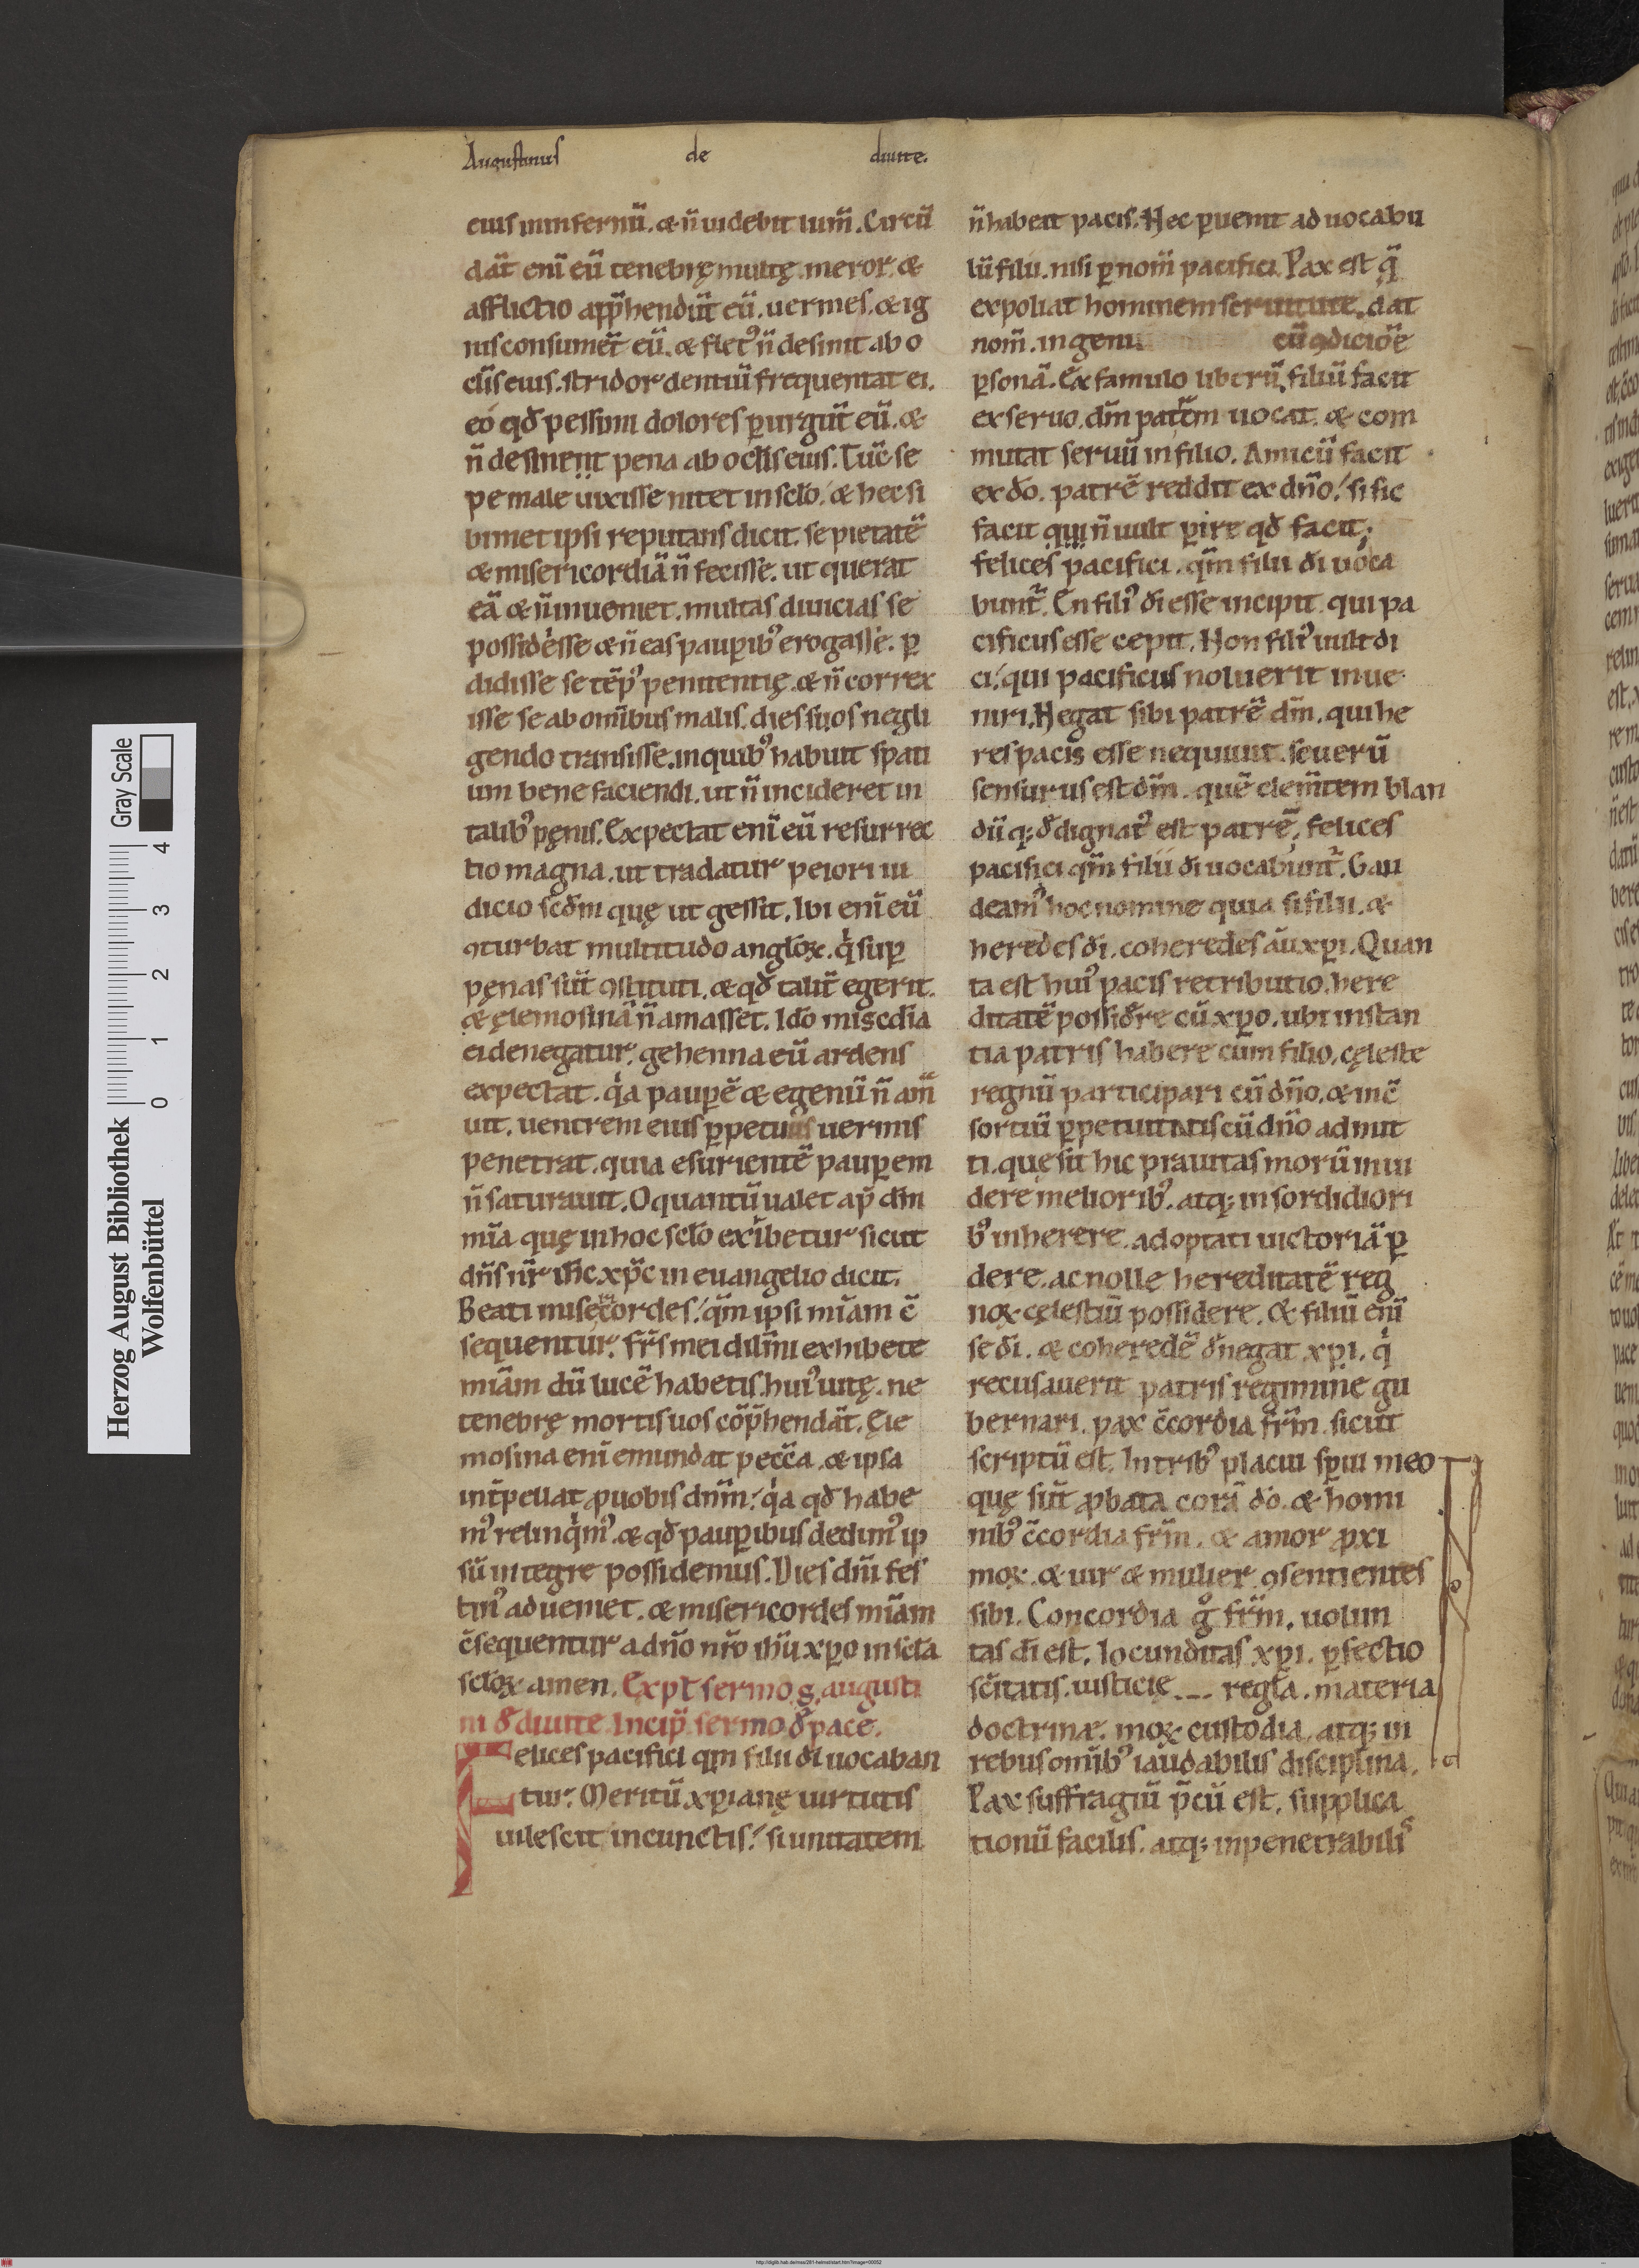 Augustinus de diuite.
eius in infernū. & n̄ uidebit lum̄. Circū
dāt enī eū tenebrę multę. meror. &
afflictio app̄hendūt eū. uermes. & ig
nis consumet̄ eū. & flet᷒ n̄ desinit ab o
cl̄is eius. stridor dentiū frequentat ei.
eo qđ pessimi dolores ꝑurgūt eū. &
n̄ desinent pena ab oc̄lis eius. Tūc se
pe male uixisse nitet in sc̄lo. & hec si
bimet ipsi reputans dicit. se pietatē
& misericordiā n̄ fecisse. ut querat
eā & n̄ inueniet. multas diuicias se
possidesse & n̄ eas pauꝑib᷒ erogasse. ꝑ
didisse se tēp᷒ penitentię. & n̄ correx
isse se ab omībus malis. dies suos negli
gendo transisse. in quib᷒ habuit spati
um bene faciendi. ut n̄ incideret in
talib᷒ pęnis. Expectat enī eū resurrec
tio magna. ut tradatur peiori iu
dicio sc̄đm quę ut gessit. Ibi enī eū
ꝯturbat multitudo angl̄oꝝ. qͥ suꝑ
pęnas sūt ꝯstituti. & qđ talit̄ egerit.
& ęlemosinā n̄ amasset. Idō misc̄dia
ei denegatur. gehenna eū ardens
expectat. qͥa pauꝑē & egenū n̄ am̄
uit. uentrem eius ꝑpetuus uermis
penetrat. quia esurientē pauꝑem
n̄ saturauit. O quantū ualet ap̄ dm̄
mīa quę in hoc sc̄lo exibetur sicut
dn̄s nr̄ ih̄c xp̄c in euangelio dicit.
Beati misec̄ordes. qm̄ ipsi mīam c̄
sequentur. fr̄s mei dilm̄i exhibete
mīam dū lucē habetis. hui᷒ uitę. ne
tenebrę mortis uos cōp̄hendāt. Ęle
mosina enī emundat pecc̄a. & ipsa
int̄pellat ꝓ uobis dn̄m. qͥa qđ habe
m᷒ relinqͥm᷒. & qđ pauꝑibus dedim᷒ ip
sū integre possidemus. Dies dn̄i fes
tin᷒ adueniet. & misericordes mīam
c̄sequentur a dn̄o nr̄o ih̄u xp̄o in sc̄la
sc̄loꝝ amen. Expl̄t sermo s. augusti
ni đ diuite. Incip̄ sermo đ pace.
Felices pacifici qm̄ filii di uocaban
tur. Meritū xp̄ianę uirtutis
uilescit in cunctis. si unitatem
n̄ habeat pacis. Nec ꝑuenit ad uocabu
lū filii. nisi ꝑ nom̄ pacifici. Pax est q̄
expoliat hominem seruitute. dat
nom̄. ingenu cū ꝯdiciōe
ꝑsonā. Ex famulo liberū. filiū facit
ex seruo. dm̄ patrem uocat. & com
mutat seruū in filio. Amicū facit
ex đo. patrē reddit ex dn̄o. si sic
facit qui n̄ uult ꝑire qđ facit.
felices pacifici. qm̄ filii di uoca
bunt̄. En fili᷒ di esse incipit. qui pa
cificus esse cepit. Non fili᷒ uult di
ci. qui pacificus noluerit inue
niri. Negat sibi patrē dm̄. qui he
res pacis esse nequiuit. seuerū
sensurus est dm̄. quē clem̄tem blan
dūq; đdignat᷒ est patrē. felices
pacifici qm̄ filii di uocabunt̄. Gau
deam᷒ hoc nomine quia si filii. &
heredes di. coheredes aū xp̄i. Quan
ta est hui᷒ pacis retributio. here
ditatē possiđre cū xp̄o. ubi instan
tia patris habere cum filio. cęleste
regnū participari cū dn̄o. & in c̄
sortiū ꝑpetuitatis cū dn̄o admit
ti. que sit hic prauitas morū inui
dere meliorib᷒. atq; in sordidiori
b᷒ inherere. adoptati uictoriā ꝑ
dere. ac nolle hereditatē reg
noꝝ cęlestiū possidere. & filiū enī
se di. & coheredē đnegat xp̄i. qͥ
recusauerit patris regimine gu
bernari. pax c̄cordia fr̄m. sicut
scriptū est. In trib᷒ placui sp̄ui meo
quę sūt ꝓbata corā đo. & homi
nib᷒ c̄cordia fr̄m. & amor ꝓxi
moꝝ. & uir & mulier ꝯsentientes
sibi. Concordia gͦ fr̄m. uolun
tas di est. Iocunditas xp̄i. ꝑfectio
sc̄itatis. iusticię regl̄a. materia
doctrinæ. moꝝ custodia. atq; in
rebus omīb᷒ laudabilis disciplina.
Pax suffragiū p̄cū est. supplica
tionū facilis. atq; inpenetrabilis